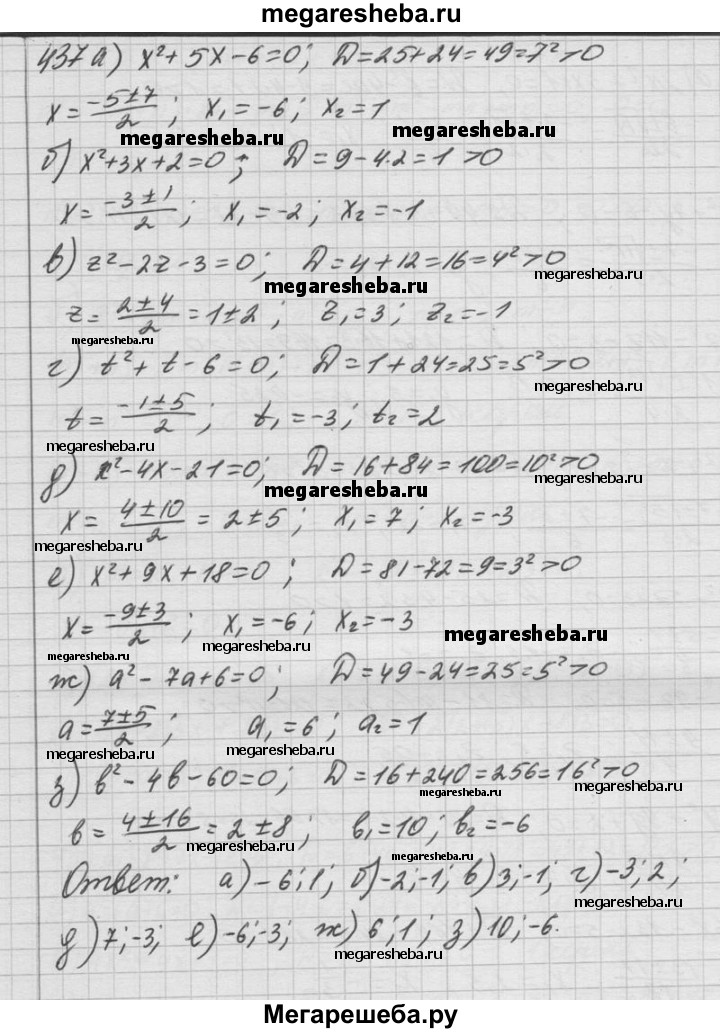 megaresheba.ru
437 а) x²+5x-6=0; D=25+24=49=7²>0
x=(-5±7)/2; x₁=-6; x₂=1
megaresheba.ru megaresheba.ru
б) x²+3x+2=0; D=9-4·2=1>0
x=(-3±1)/2; x₁=-2; x₂=-1
в) z²-2z-3=0; D=4+12=16=4²>0
megaresheba.ru megaresheba.ru
z=(2±4)/2=1±2; z₁=3; z₂=-1
megaresheba.ru megaresheba.ru
г) t²+t-6=0; D=1+24=25=5²>0
megaresheba.ru
t=(-1±5)/2; t₁=-3; t₂=2
megaresheba.ru megaresheba.ru
д) x²-4x-21=0; D=16+84=100=10²>0
megaresheba.ru megaresheba.ru
x=(4±10)/2=2±5; x₁=7; x₂=-3
megaresheba.ru megaresheba.ru
е) x²+9x+18=0; D=81-72=9=3²>0
x=(-9±3)/2; x₁=-6; x₂=-3
megaresheba.ru megaresheba.ru megaresheba.ru
ж) a²-7a+6=0; D=49-24=25=5²>0
a=(7±5)/2; a₁=6; a₂=1
megaresheba.ru megaresheba.ru
з) b²-4b-60=0; D=16+240=256=16²>0
megaresheba.ru megaresheba.ru
b=(4±16)/2=2±8; b₁=10; b₂=-6
megaresheba.ru megaresheba.ru
Ответ: а)-6;1; б)-2;-1; в)3;-1; г)-3;2;
megaresheba.ru
д)7;-3; е)-6;-3; ж)6;1; з)10;-6.
megaresheba.ru
Мегарешеба.ру